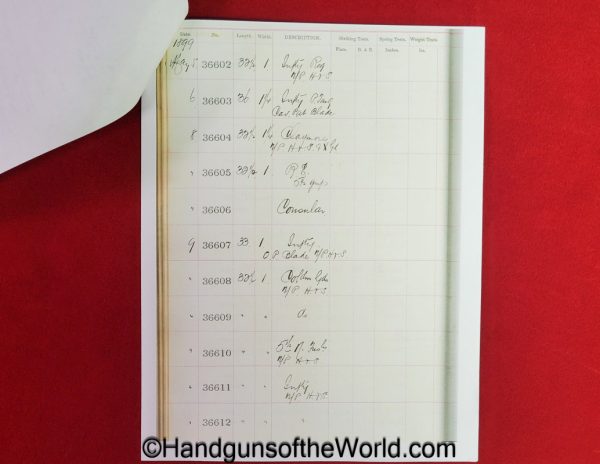 Date. No. Length. Width. DESCRIPTION. Striking Tests. Spring Tests. Weight Tests.
Face. B. & E. Inches. lbs.
1899
5 36602 32½ 1 Infty Reg
N/P H+S
6 36603 36 1¼ Infty P.
Cav. Pat Blade
8 36604 32½ 1¼ Claymore
N/P H+S
" 36605 32½ 1 R.E.
" 36606 Consular
9 36607 33 1 Infty
O.P. Blade N/P H+S
" 36608 32½ 1 Colstm Gds
N/P H+S
" 36609 " " Do
" 36610 " " 5th N. Fus
N/P H+S
" 36611 " " Infty
N/P H+S
" 36612 " " "
©HandgunsoftheWorld.com